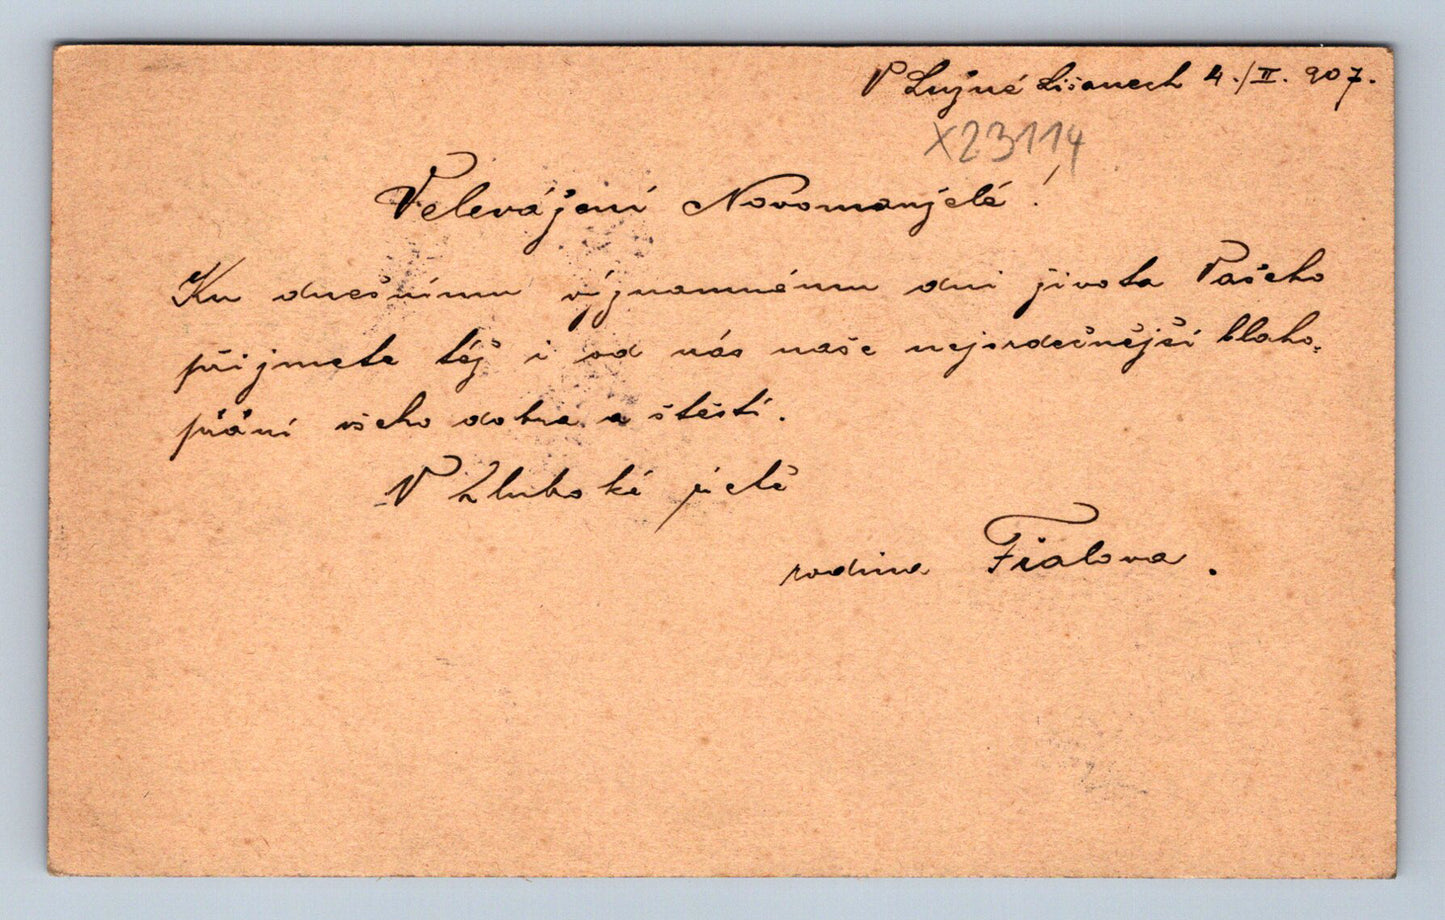 V Lužné Lišanech 4./II. 907.
x23114
Velevážení Novomanželé!
Ku dnešnímu významnému dni života Vašeho
přijmete též i od nás naše nejsrdečnější blaho-
přání všeho dobra a štěstí.
V hluboké úctě
rodina Fialova.